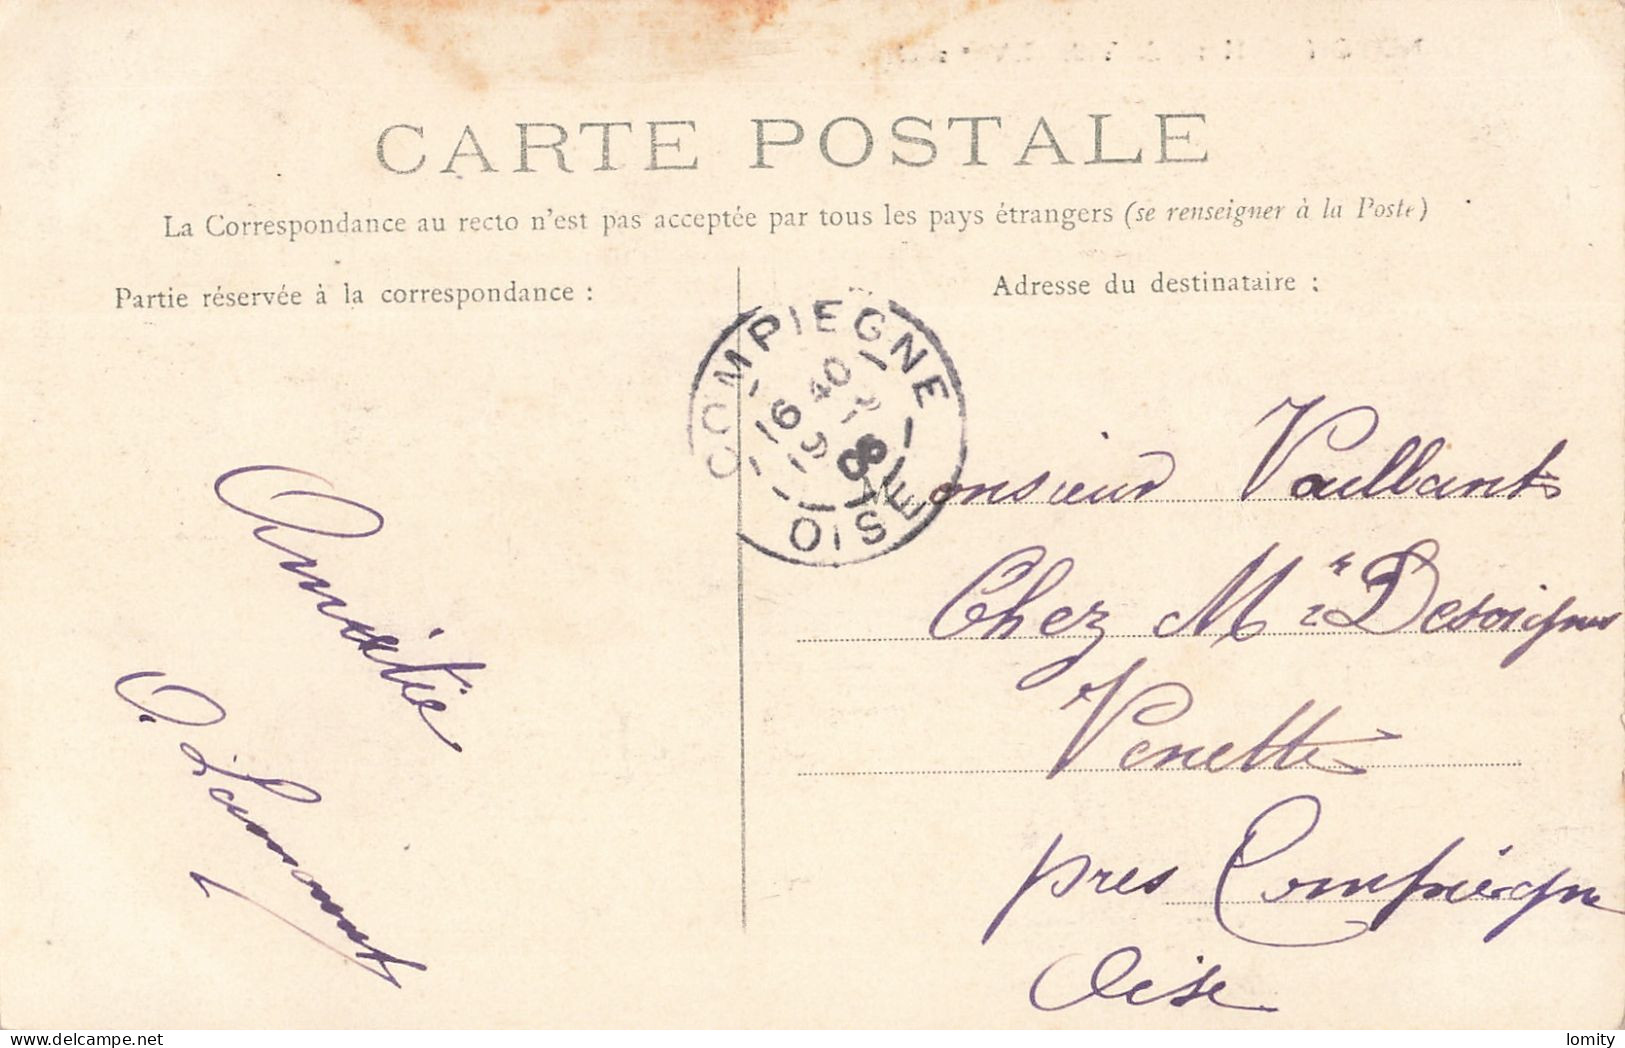 CARTE POSTALE
La Correspondance au recto n'est pas acceptée par tous les pays étrangers (se renseigner à la Poste)
Partie réservée à la correspondance :
Adresse du destinataire :
COMPIEGNE
16 40
OISE
Monsieur Vaillant
Chez Mr Desoignes
Venette
pres Compiègne
Oise
Amitié
lomity